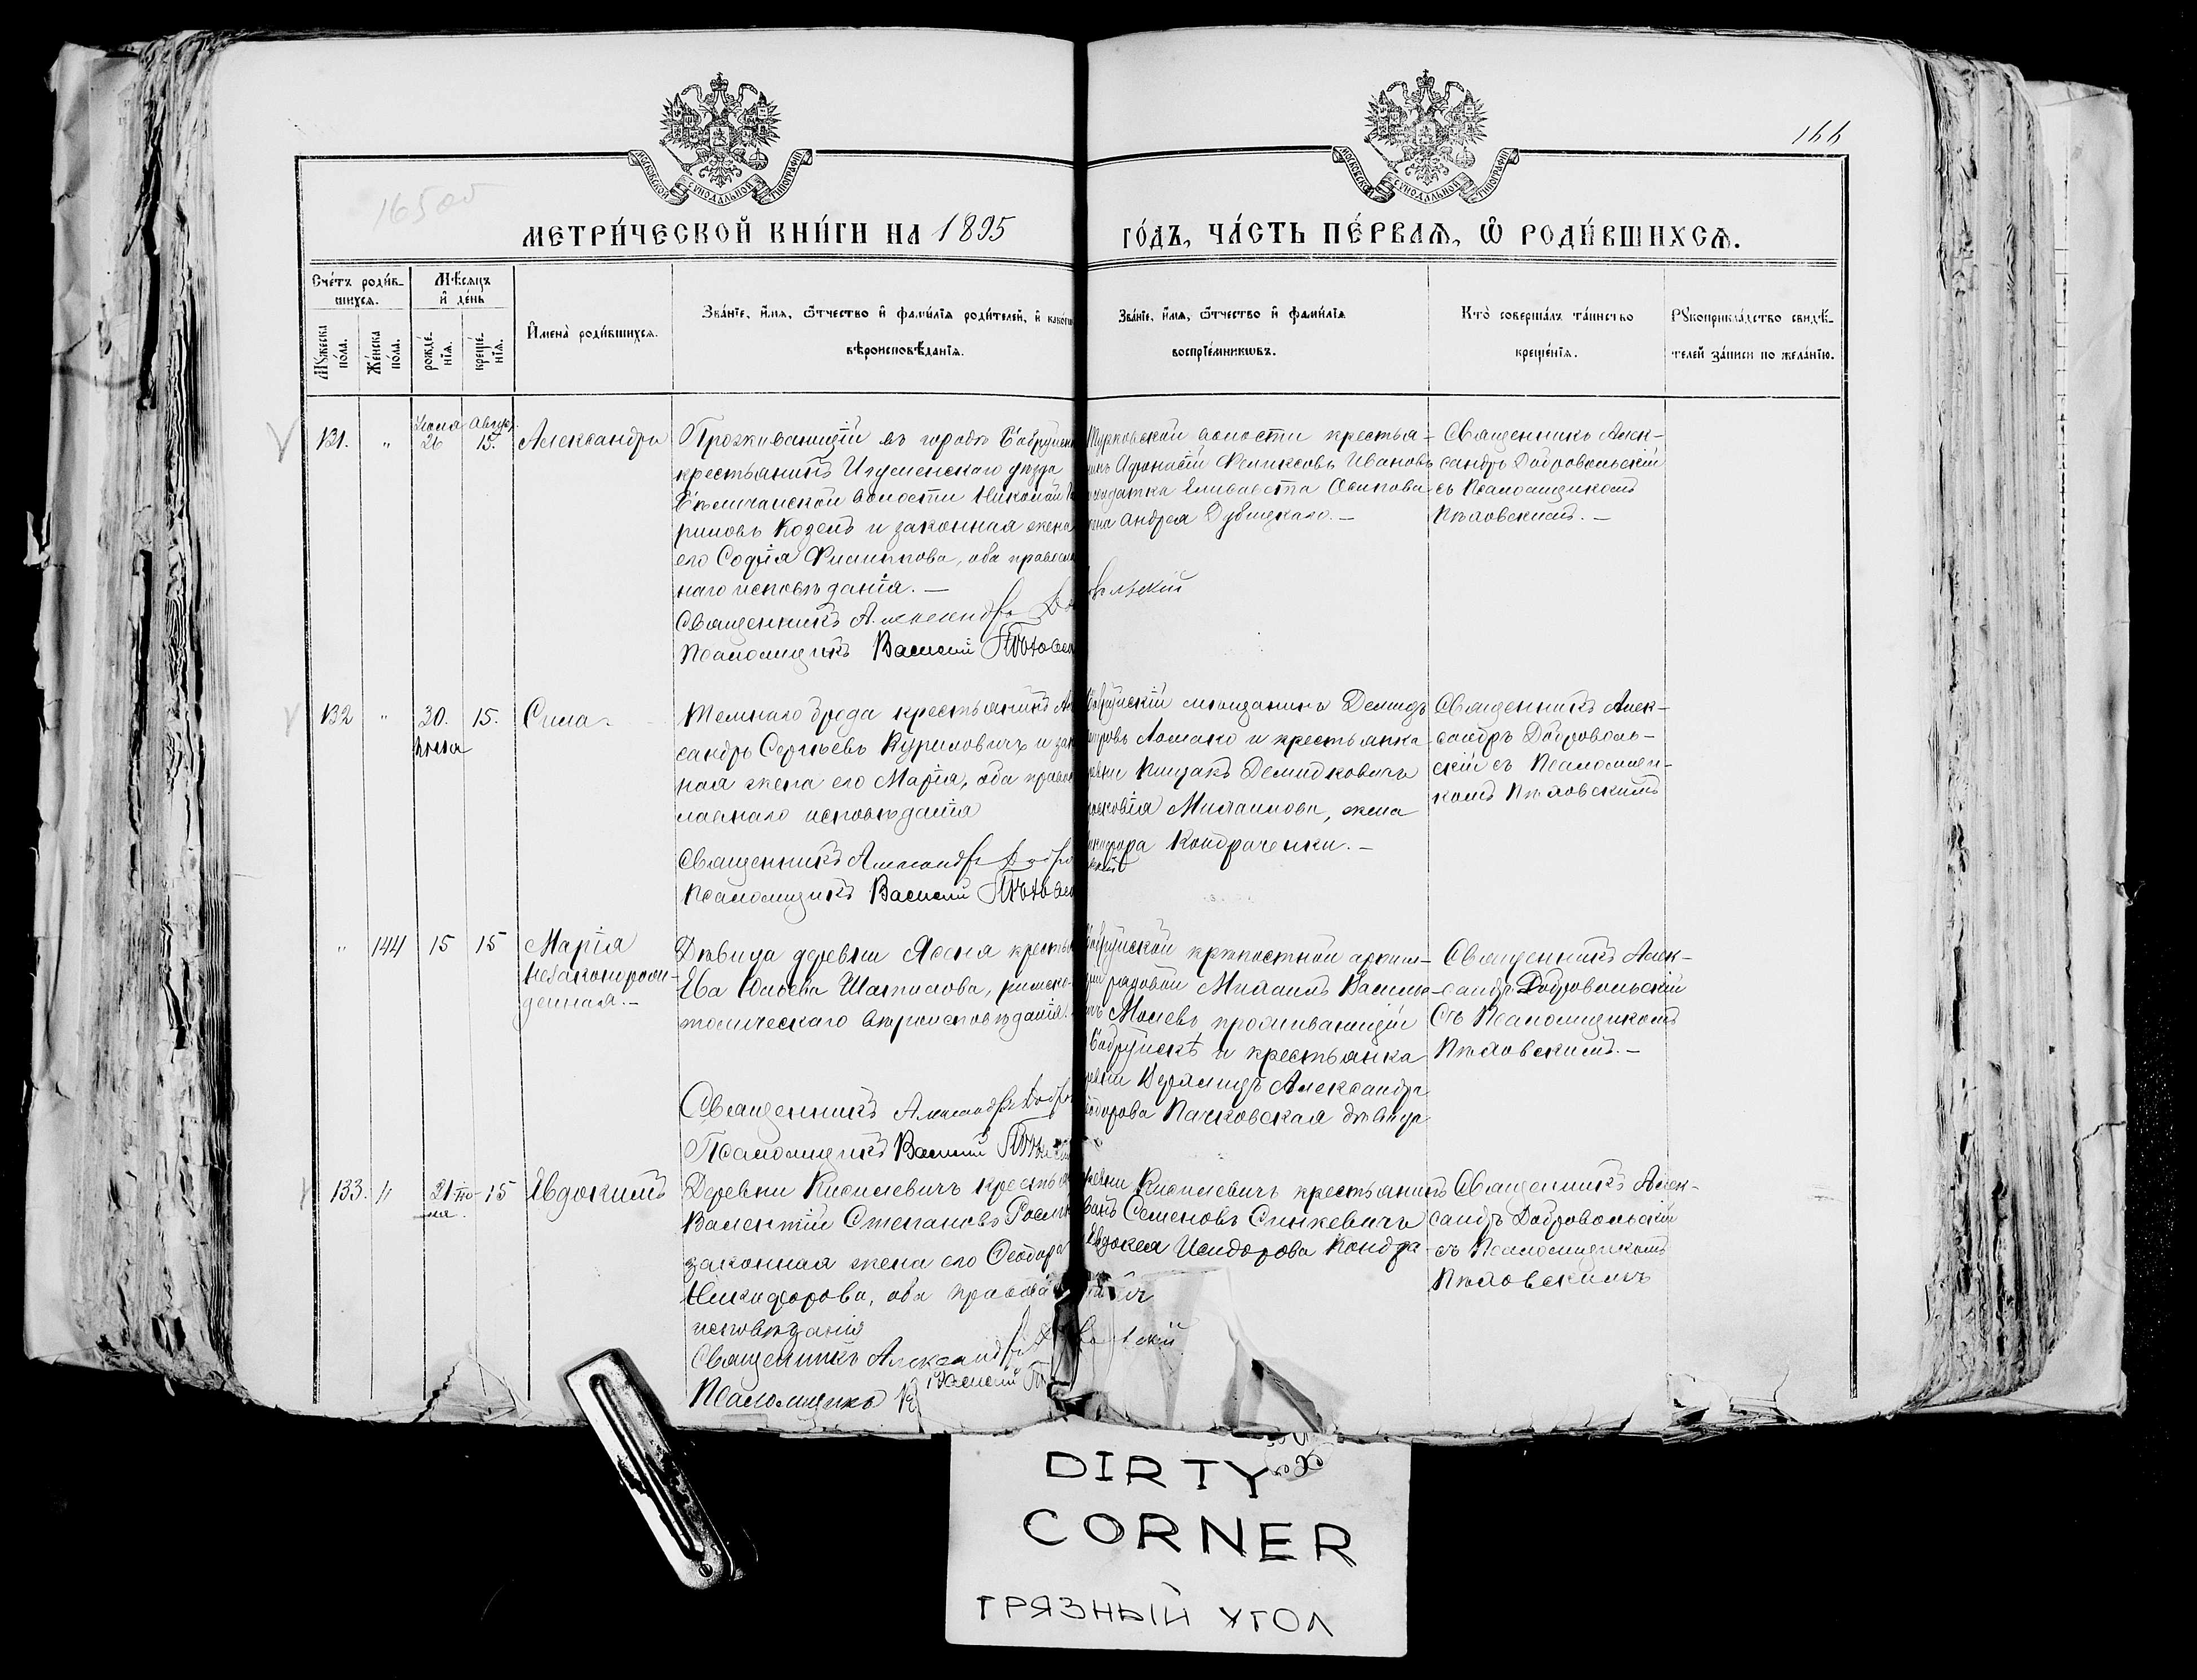 166
16500
МОСКОВСКОЙ СѴНОДАЛЬНОЙ ТИПОГРАФІИ
МОСКОВСКОЙ СѴНОДАЛЬНОЙ ТИПОГРАФІИ
МЕТРИ́ЧЕСКОЙ КНИ́ГИ НА 1895
ГО́ДЪ, ЧА́СТЬ ПЕ́РВАѦ, Ѡ РОДИ́ВШИХСѦ.
Сче́тъ роди́в-
шихся.
Мꙋжеска по́ла.
Же́нска по́ла.
Мѣ́сяцъ и де́нь
рожде́-нія.
креще́-нія.
Имена̀ роди́вшихся.
Зва́ніе, и́мя, ѻ́тчество и фами́лія роди́телей, и како́гѡ
вѣроисповѣ́данія.
Зва́ніе, и́мя, ѻ́тчество и фами́лія
воспріе́мникѡвъ.
Кто̀ соверша́лъ та́инство
креще́нія.
Рꙋкоприкла́дство свидѣ́-
телей за́писи по жела́нію.
131. " Іюля 26 Август. 15. Александръ
Проживающій въ городѣ Бобруйск
крестьянинъ Игуменскаго уѣзда
волости Николай
Козелъ и законная жена
его Софія Филиппова, оба правосл
наго исповѣданія. —
Священникъ Александръ До
Псаломщикъ Василій Пѣховск
волости крестья-
нинъ Афонасій Феликсовъ Ивановъ
солдатка Елисавета Осипова
жена Андрея —
овольскій
Священникъ Алек-
сандръ Добровольскій
съ Псаломщикомъ
Пѣховскимъ. —
132 " 30. Іюля 15. Сила.
крестьянинъ Ал
сандръ Сергѣевъ Куриловичъ и зак
ная жена его Марія, оба право
славнаго исповѣданія
Священникъ Александръ Добро
Псаломщикъ Василій Пѣховск
Бобруйскій мѣщанинъ Демидъ
Петровъ Ломако и крестьянка
Демидковичъ
жена
Кондраченки. —
Священникъ Алек-
сандръ Доброволь-
скій съ Псаломщи-
комъ Пѣховскимъ
" 144 15 15 Марія
незаконорож-
денная. —
Дѣвица деревни Ясеня кресть
Ева Юльева Шапилова, римско-
толическаго вѣроисповѣданія.
Священникъ Александръ Добро
Псаломщикъ Василій
Бобруйской крѣпостной артил-
рядовой Михаилъ Василь-
проживающій
Бобруйскѣ и крестьянка
Александра
Ѳеодорова Пачковская дѣвица
Священникъ Алек-
сандръ Добровольскій
Съ Псаломщикомъ
Пѣховскимъ. —
133. " 21 іюля 15 Евдокимъ
Деревни Киселевичъ крестья
Валентій Степановъ
законная жена его Ѳеодора
Никифорова, оба право
исповѣданія
Священникъ Александръ
Псаломщикъ
Василій
деревни Киселевичъ крестьянинъ
Иванъ Семеновъ Синкевичъ
Евдокея Исидорова Кондра-
Священникъ Алек-
сандръ Добровольскій
съ Псаломщикомъ
Пѣховскимъ
DIRTY
CORNER
ГРЯЗНЫЙ УГОЛ